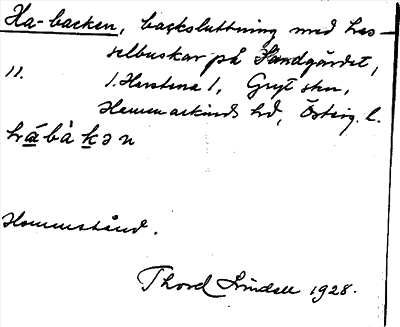 Ha-backen, backsluttning med has-
selbuskar på Sandgärdet,
11. 1. Herstena 1, Gryt skn,
Hammarkinds hd, Österg. l.
hrábàkən
Hommstånd.
Thord Lindell 1928.